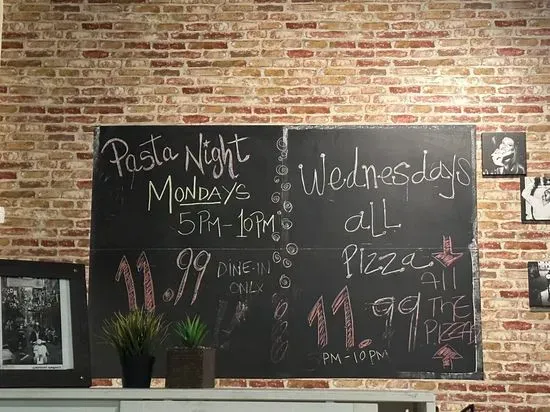 Pasta Night
MONDAYS
5PM-10PM
11.99 DINE-IN
ONLY
Wednesdays
all
Pizza
11.99
PM-10PM
All
THE
PIZZA